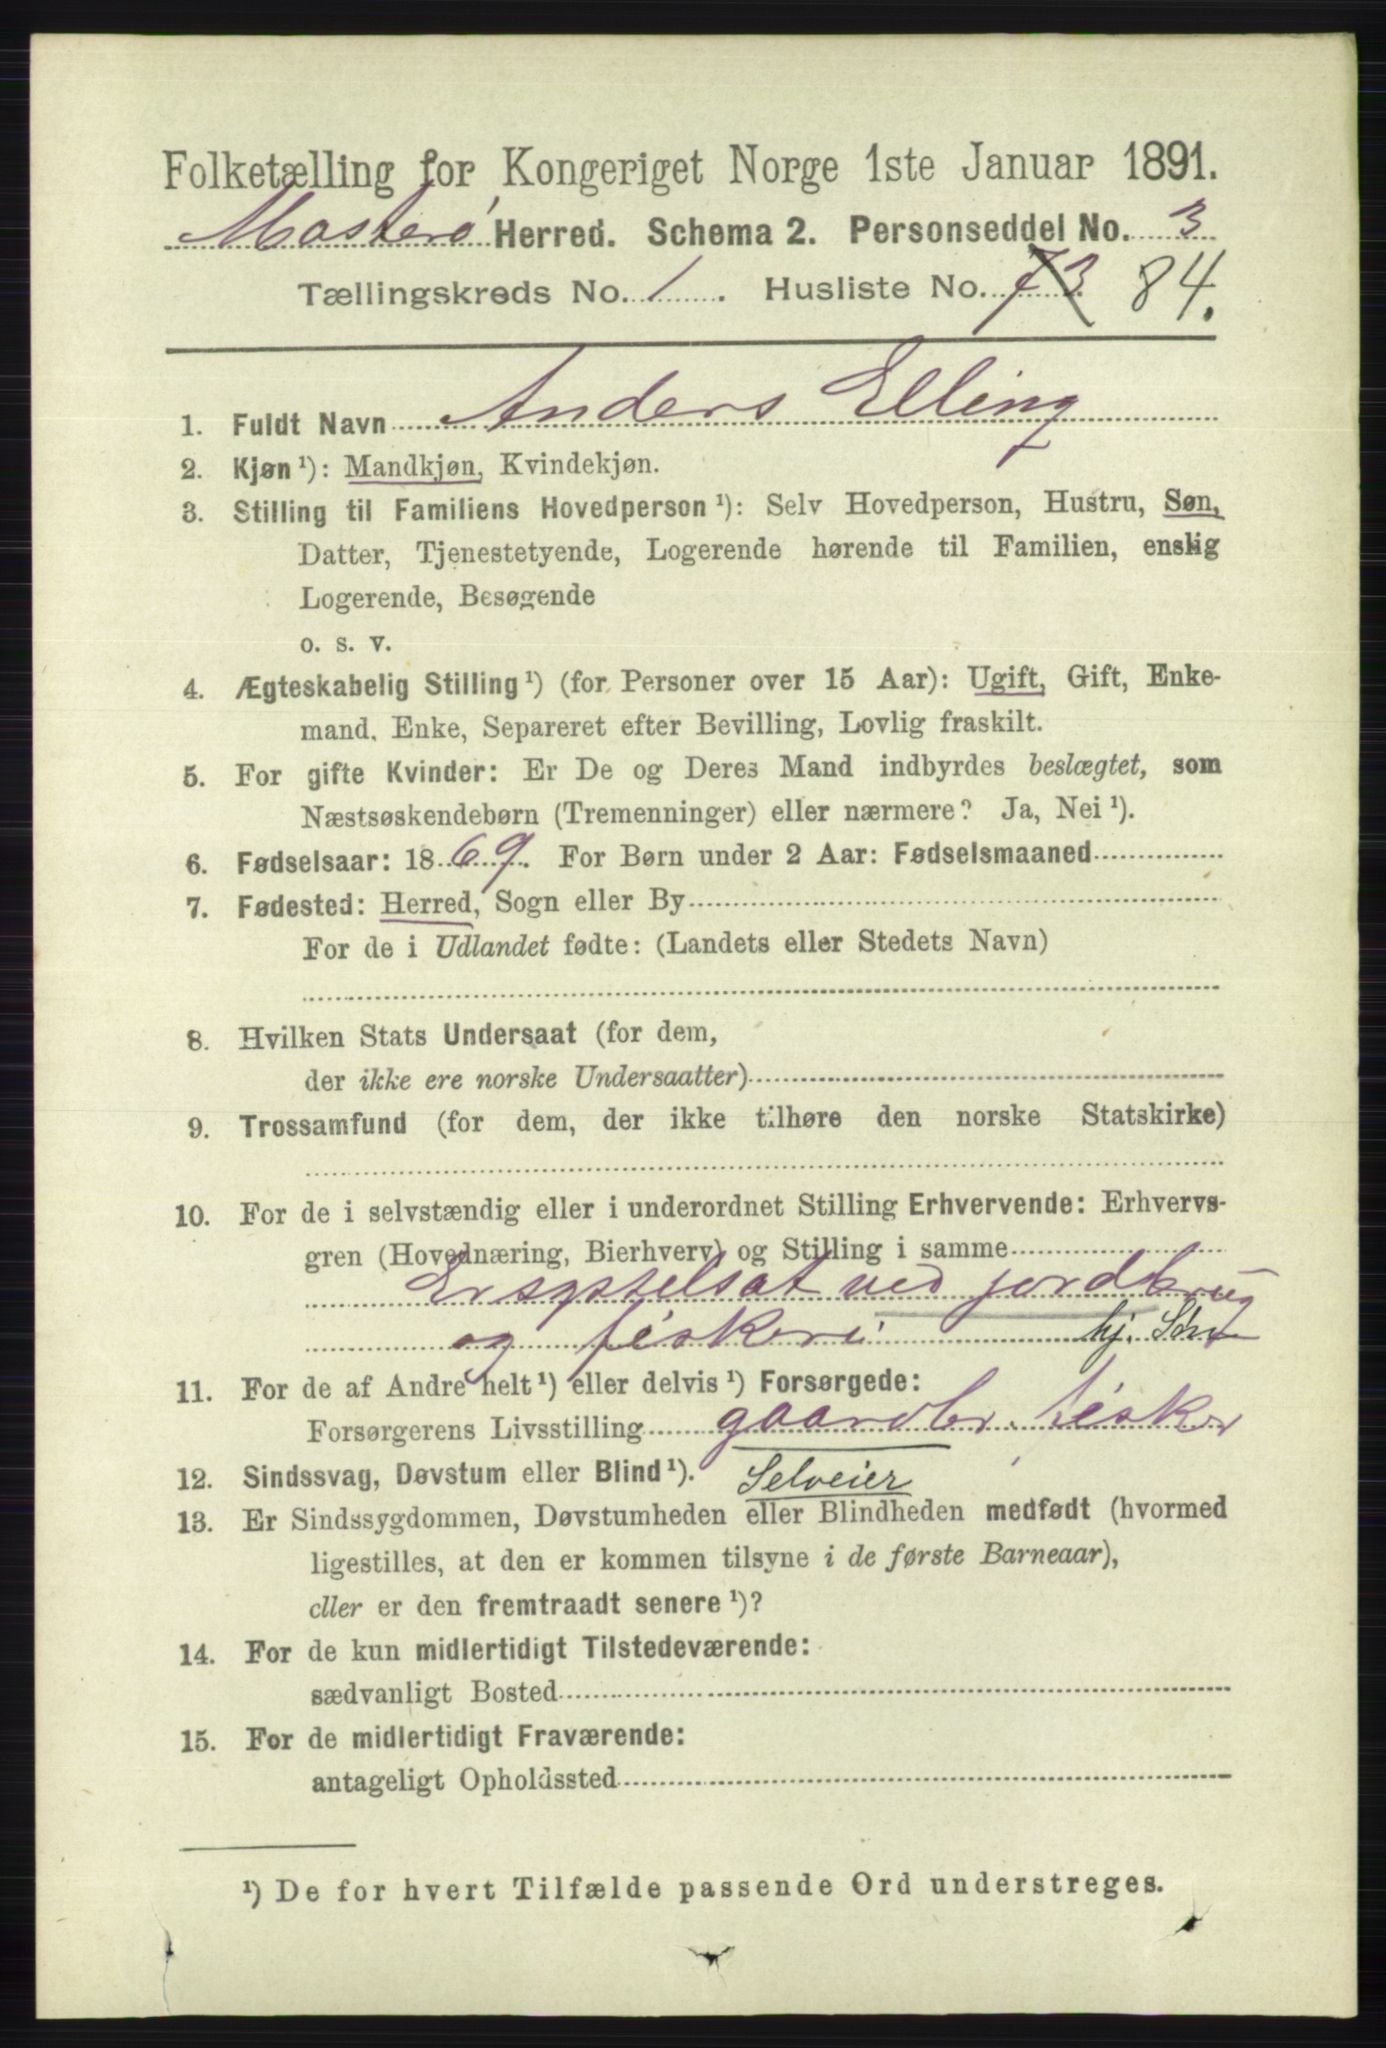 Folketælling for Kongeriget Norge 1ste Januar 1891.
Mosterø Herred. Schema 2. Personseddel No. 3
Tællingskreds No. 1. Husliste No. 73 84.
1. Fuldt Navn Anders Elling
2. Kjøn ¹): Mandkjøn, Kvindekjøn.
3. Stilling til Familiens Hovedperson ¹): Selv Hovedperson, Hustru, Søn,
Datter, Tjenestetyende, Logerende hørende til Familien, enslig
Logerende, Besøgende
o. s. v.
4. Ægteskabelig Stilling ¹) (for Personer over 15 Aar): Ugift, Gift, Enke-
mand, Enke, Separeret efter Bevilling, Lovlig fraskilt.
5. For gifte Kvinder: Er De og Deres Mand indbyrdes beslægtet, som
Næstsøskendebørn (Tremenninger) eller nærmere? Ja, Nei ¹).
6. Fødselsaar: 1869. For Børn under 2 Aar: Fødselsmaaned
7. Fødested: Herred, Sogn eller By
For de i Udlandet fødte: (Landets eller Stedets Navn)
8. Hvilken Stats Undersaat (for dem,
der ikke ere norske Undersaatter)
9. Trossamfund (for dem, der ikke tilhøre den norske Statskirke)
10. For de i selvstændig eller i underordnet Stilling Erhvervende: Erhvervs-
gren (Hovednæring, Bierhverv) og Stilling i samme
Er sysselsat ved jordbrug
og fiskeri hj. Søn
11. For de af Andre helt ¹) eller delvis ¹) Forsørgede:
Forsørgerens Livsstilling gaardbr. fisker
12. Sindssvag, Døvstum eller Blind ¹). Selveier
13. Er Sindssygdommen, Døvstumheden eller Blindheden medfødt (hvormed
ligestilles, at den er kommen tilsyne i de første Barneaar),
eller er den fremtraadt senere ¹)?
14. For de kun midlertidigt Tilstedeværende:
sædvanligt Bosted
15. For de midlertidigt Fraværende:
antageligt Opholdssted
¹) De for hvert Tilfælde passende Ord understreges.